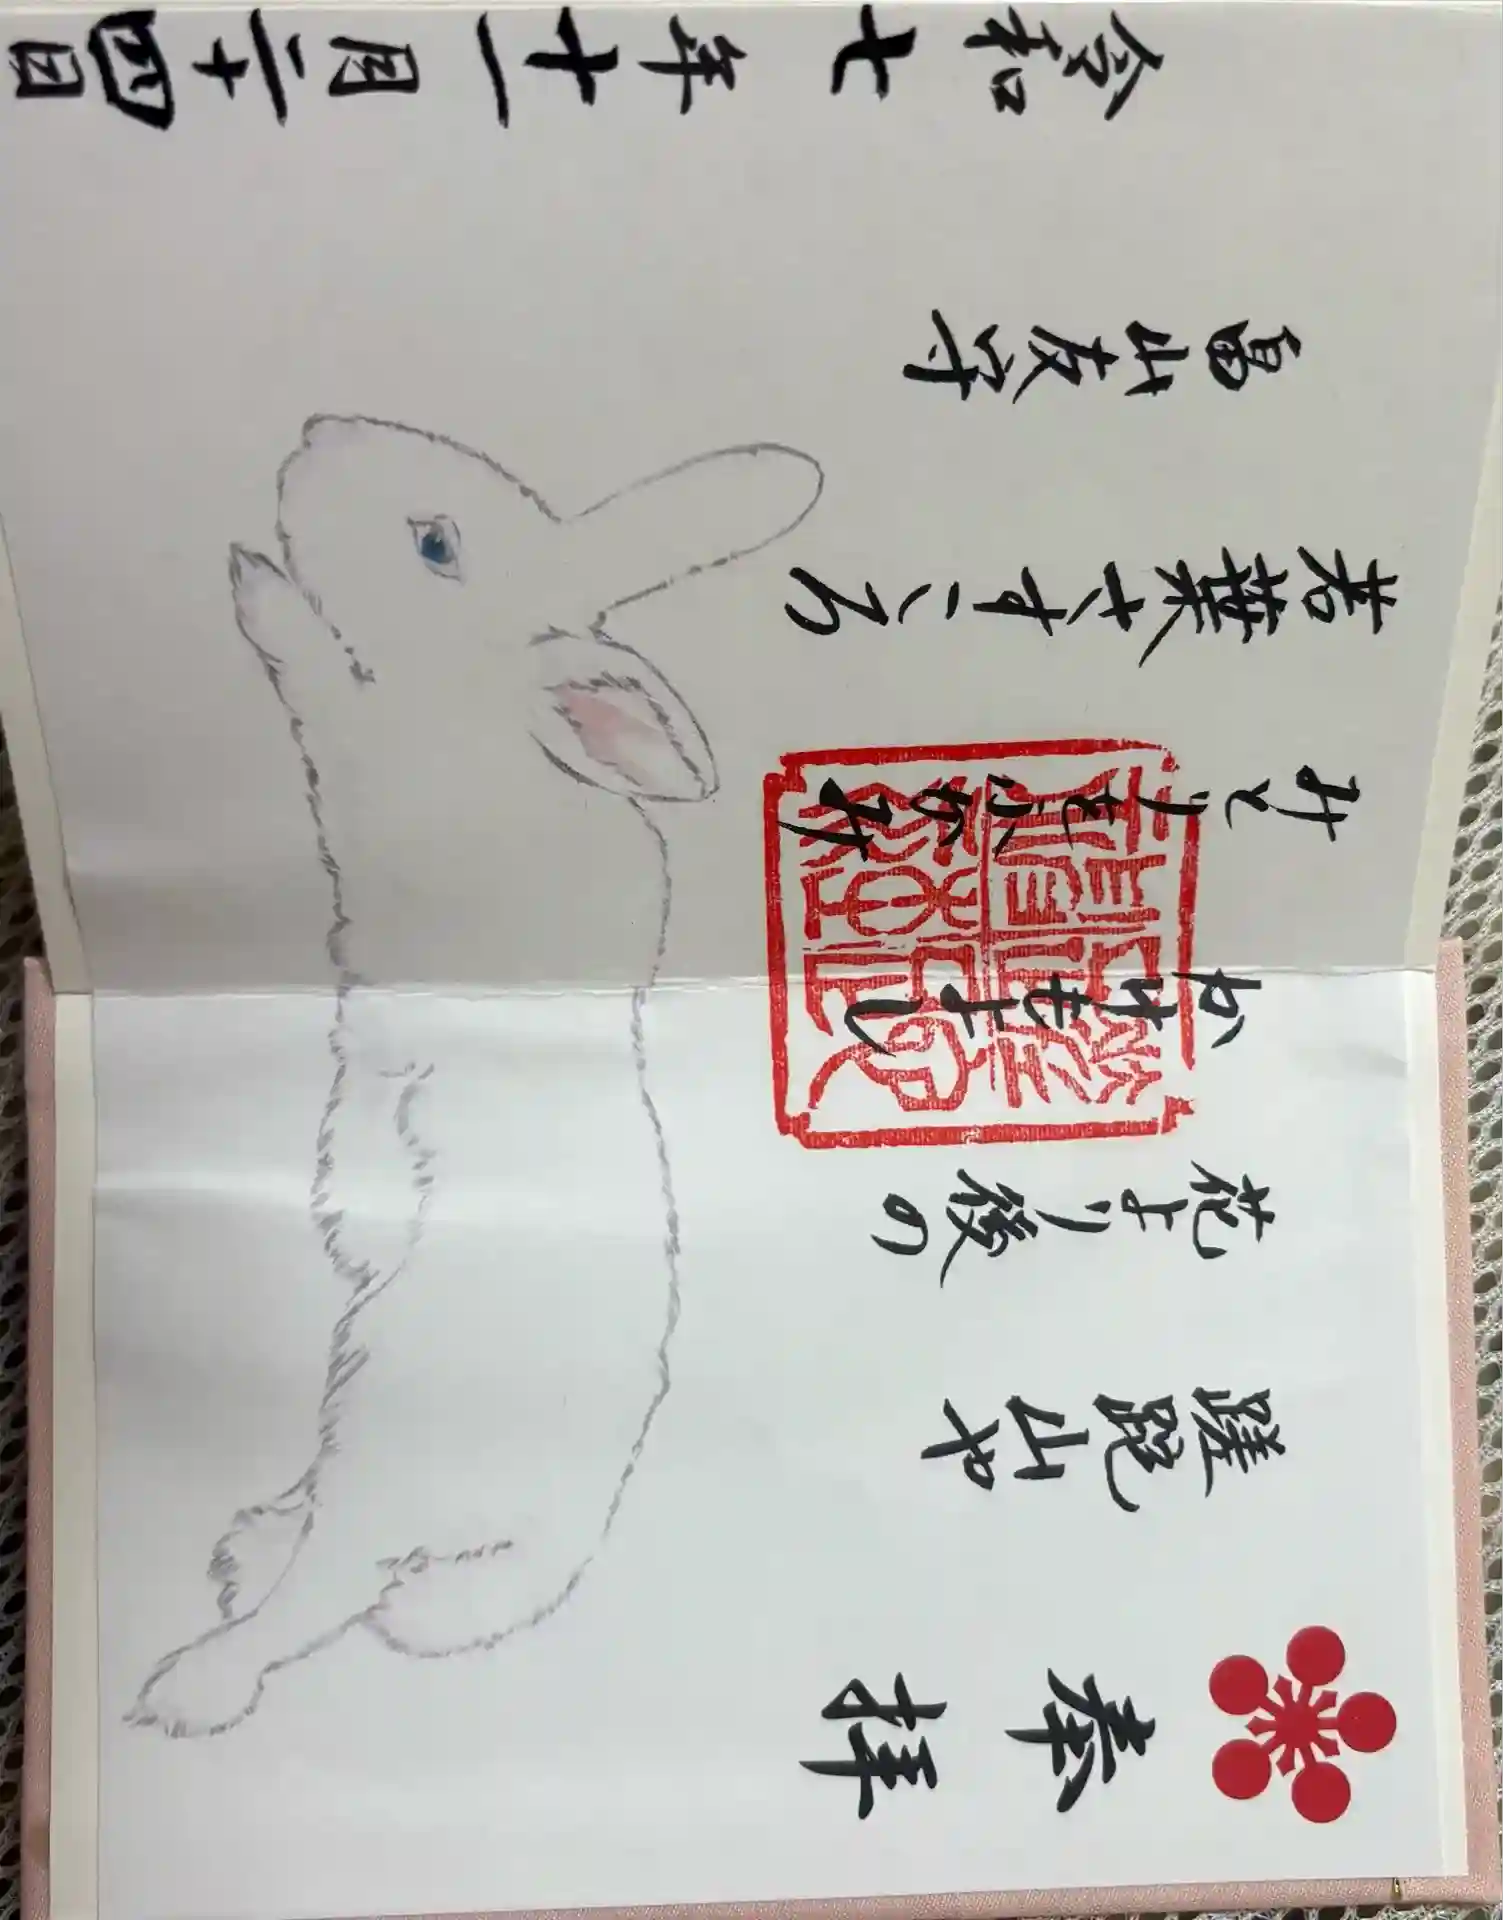 奉拝
蹉跎山や
花より後の
かけもよし
みとりもふかみ
若葉さすころ
畠山友守
令和七年十一月二十四日